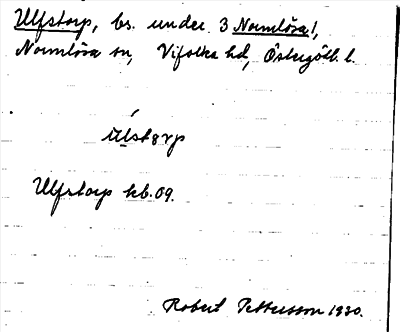 Ulfstorp, bs. under 3 Normlösa!,
Normlösa sn, Vifolka hd, Östergötl. l.
Ulfstorp kb. 09.
Robert Pettersson 1930.